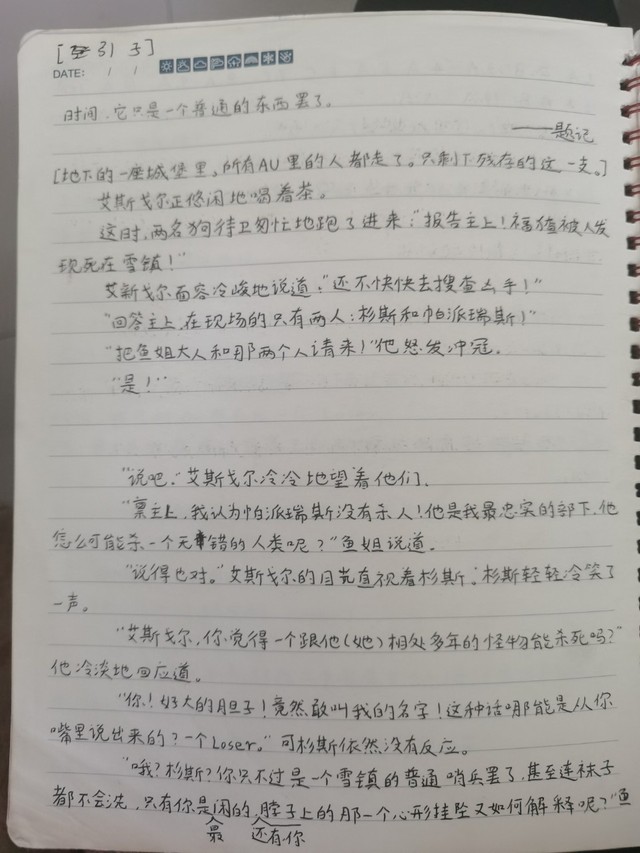 [至引子]
DATE: / /
时间,它只是一个普通的东西罢了。
——题记
[地下的一座城堡里。所有AU里的人都走了。只剩下残存的这一支。]
艾斯戈尔正悠闲地喝着茶。
这时,两名狗待卫匆忙地跑了进来:“报告主上!福猹被人发
现死在雪镇!”
艾斯戈尔面容冷峻地说道:“还不快快去搜查凶手!”
“回答主上,在现场的只有两人:杉斯和帕派瑞斯!”
“把鱼姐大人和那两个人请来!”他怒发冲冠。
“是!”
“说吧。”艾斯戈尔冷冷地望着他们。
“禀主上,我认为帕派瑞斯没有杀人!他是我最忠实的部下,他
怎么可能杀一个无错的人类呢?”鱼姐说道。
“说得也对。”艾斯戈尔的目光直视着杉斯。杉斯轻轻冷笑了
一声。
“艾斯戈尔,你觉得一个跟他(她)相处多年的怪物能杀死吗?”
他冷淡地回应道。
“你!好大的胆子!竟然敢叫我的名字!这种话哪能是从你
嘴里说出来的?一个Loser。”可杉斯依然没有反应。
“哦?杉斯?你只不过是一个雪镇的普通哨兵罢了,甚至连袜子
都不会洗,只有你是闲的,脖子上的那一个心形挂坠又如何解释呢?”鱼
最 还有你